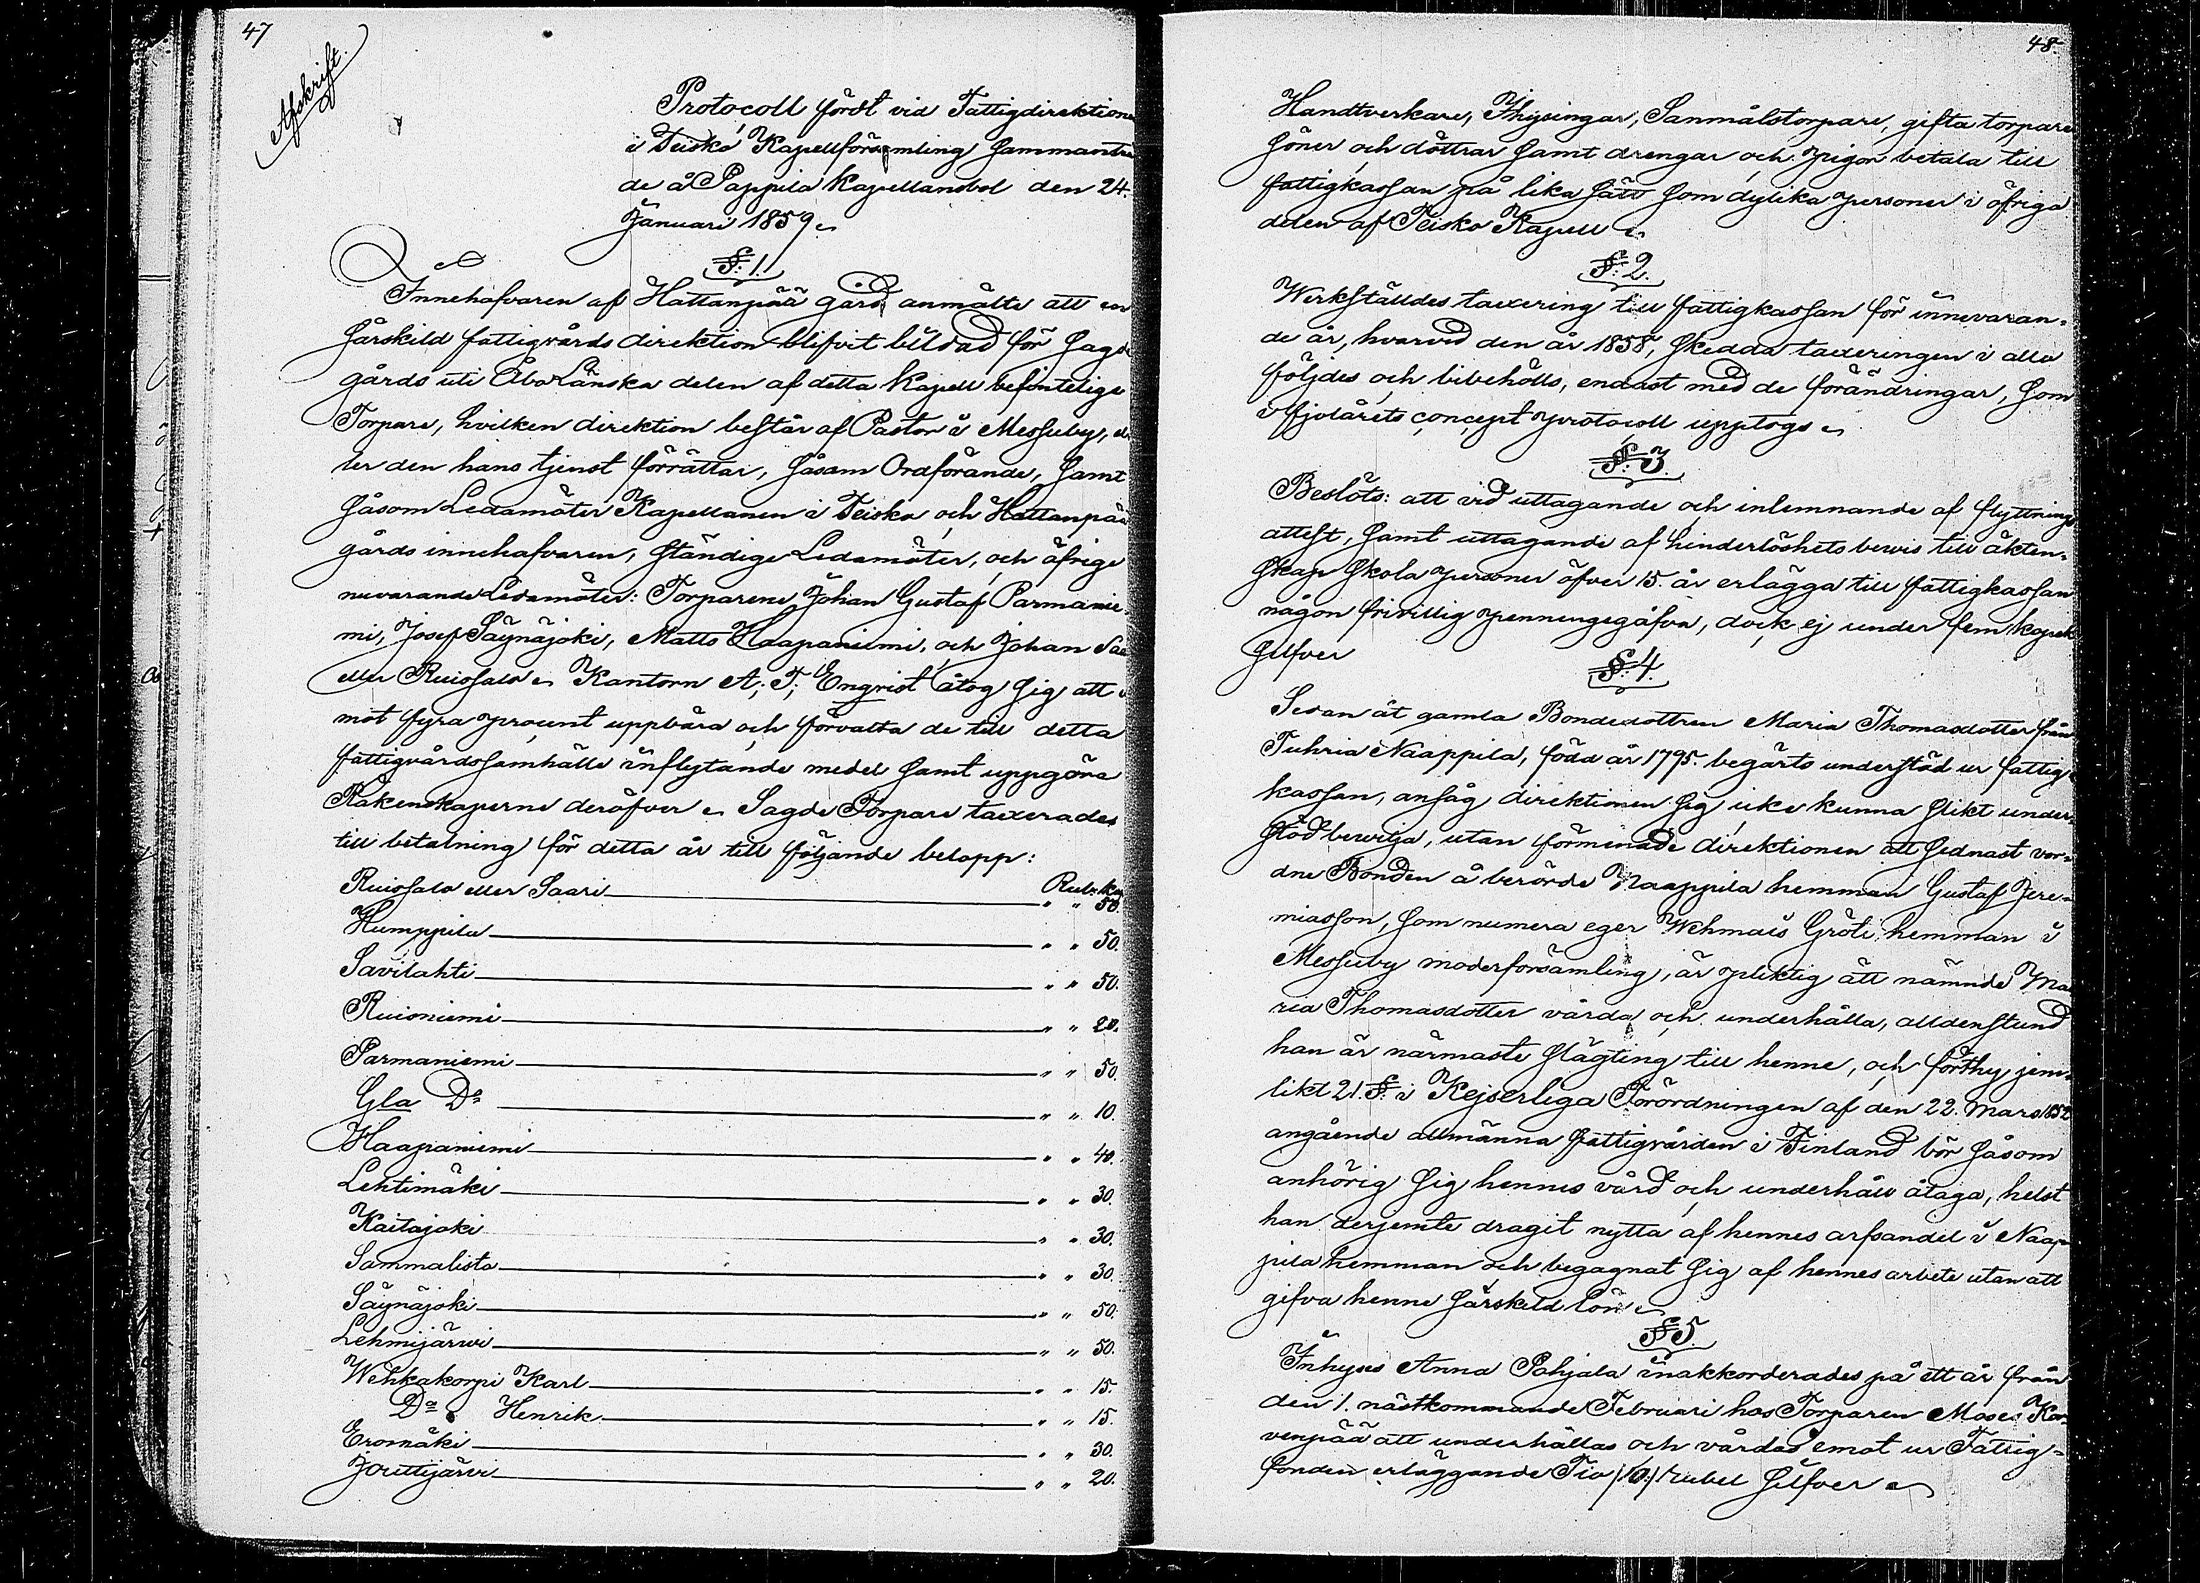 47
Afskrift.
Protocoll fördt vid Fattigdirektions
i Teisko Kapellförsamling sammanträ
de å Pappila Kapellansbol den 24.
Januari 1859.
§. 1.
Innehafvaren af Hattanpää gård anmälte att en
särskild fattigvårds direktion blifvit bildad för sagde
gårds uti Åbo Länska delen af detta Kapell befintelige
Torpare, hvilken direktion består af Pastor i Messuby, el
ler den hans tjenst förrättar, såsom Ordförande, samt
såsom Ledamöter Kapellanen i Teisko och Hattanpää
gårds innehafvaren, ständige Ledamöter, och öfrige
nuvarande Ledamöter: Torparene Johan Gustaf Parmanie
mi, Josef Säynäjoki, Matts Haapaniemi, och Johan Saa
eller Ruiosalo. Kantorn A. F. Engvist åtog sig att
mot fyra procent uppbära och förvalta de till detta
fattigvårdssamhälle inflytande medel samt uppgöra
Räkenskaperne deröfver. Sagde Torpare taxerades
till betalning för detta år till följande belopp:
Rub. kop
Ruiosalo eller Saari " " 50.
Humppila " " 50.
Savilahti " " 50.
Ruioniemi " " 20.
Parmaniemi " " 50.
Gla Do " " 10.
Haapaniemi " " 40.
Lehtimäki " " 30.
Kaitajoki " " 30.
Sammalisto " " 30.
Säynäjoki " " 50.
Lehmijärwi " " 50.
Wehkakorpi Karl " " 15.
Do Henrik " " 15.
Eromäki " " 30.
Jouttijärvi " " 20.
48.
Handtverkare, Inhysingar, Sanmålstorpare, gifta torpare
söner och döttrar samt drengar och pigor betala till
fattigkassan på lika sätt som dylika personer i öfriga
delen af Teisko Kapell
§. 2.
Werkställdes taxering till fattigkassan för innevaran-
de år, hvarvid den år 1858, skedda taxeringen i allo
följdes och bibehölls, endast med de förändringar, som
i fjolårets concept protocoll upptogs
§. 3.
Beslöts: att vid uttagande och inlemnande af flyttnings
attest, samt uttagande af hinderlöshets bewis till äkten-
skap skola personer öfver 15. år erlägga till fattigkassan
någon frivillig penningegåfva, dock ej under fem kopek
silfver
§. 4.
Sedan åt gamla Bondedottren Maria Thomasdotter från
Tuhria Naappila, född år 1795. begärts understöd ur fattig
kassan, ansåg direktionen sig icke kunna slikt under-
stöd bewilja, utan förmenade direktionen att sednast vor-
dne Bonden å berörde Naappila hemman Gustaf Jere-
miasson, som numera eger Wehmais Gröti hemman i
Messuby moderförsamling, är pliktig att nämnde Ma
ria Thomasdotter vårda och underhålla, alldenstund
han är närmaste slägting till henne, och förthy jem-
likt 21. §. i Kejserliga Förordningen af den 22. Mars 1852
angående allmänna fattigvården i Finland bör såsom
anhörig sig hennes vård och underhåll åtaga, helst
han derjemte dragit nytta af hennes arfsandel i Naap-
pila hemman och begagnat sig af hennes arbete utan att
gifva henne särskild lön
§ 5.
Inhyses Anna Pohjala inakkorderades på ett år från
den 1. nästkommande Februari hos Torparen Moses Kor
venpää att underhållas och vårdas emot ur Fattig-
fonden erläggande Tio /10/ rubel silfver